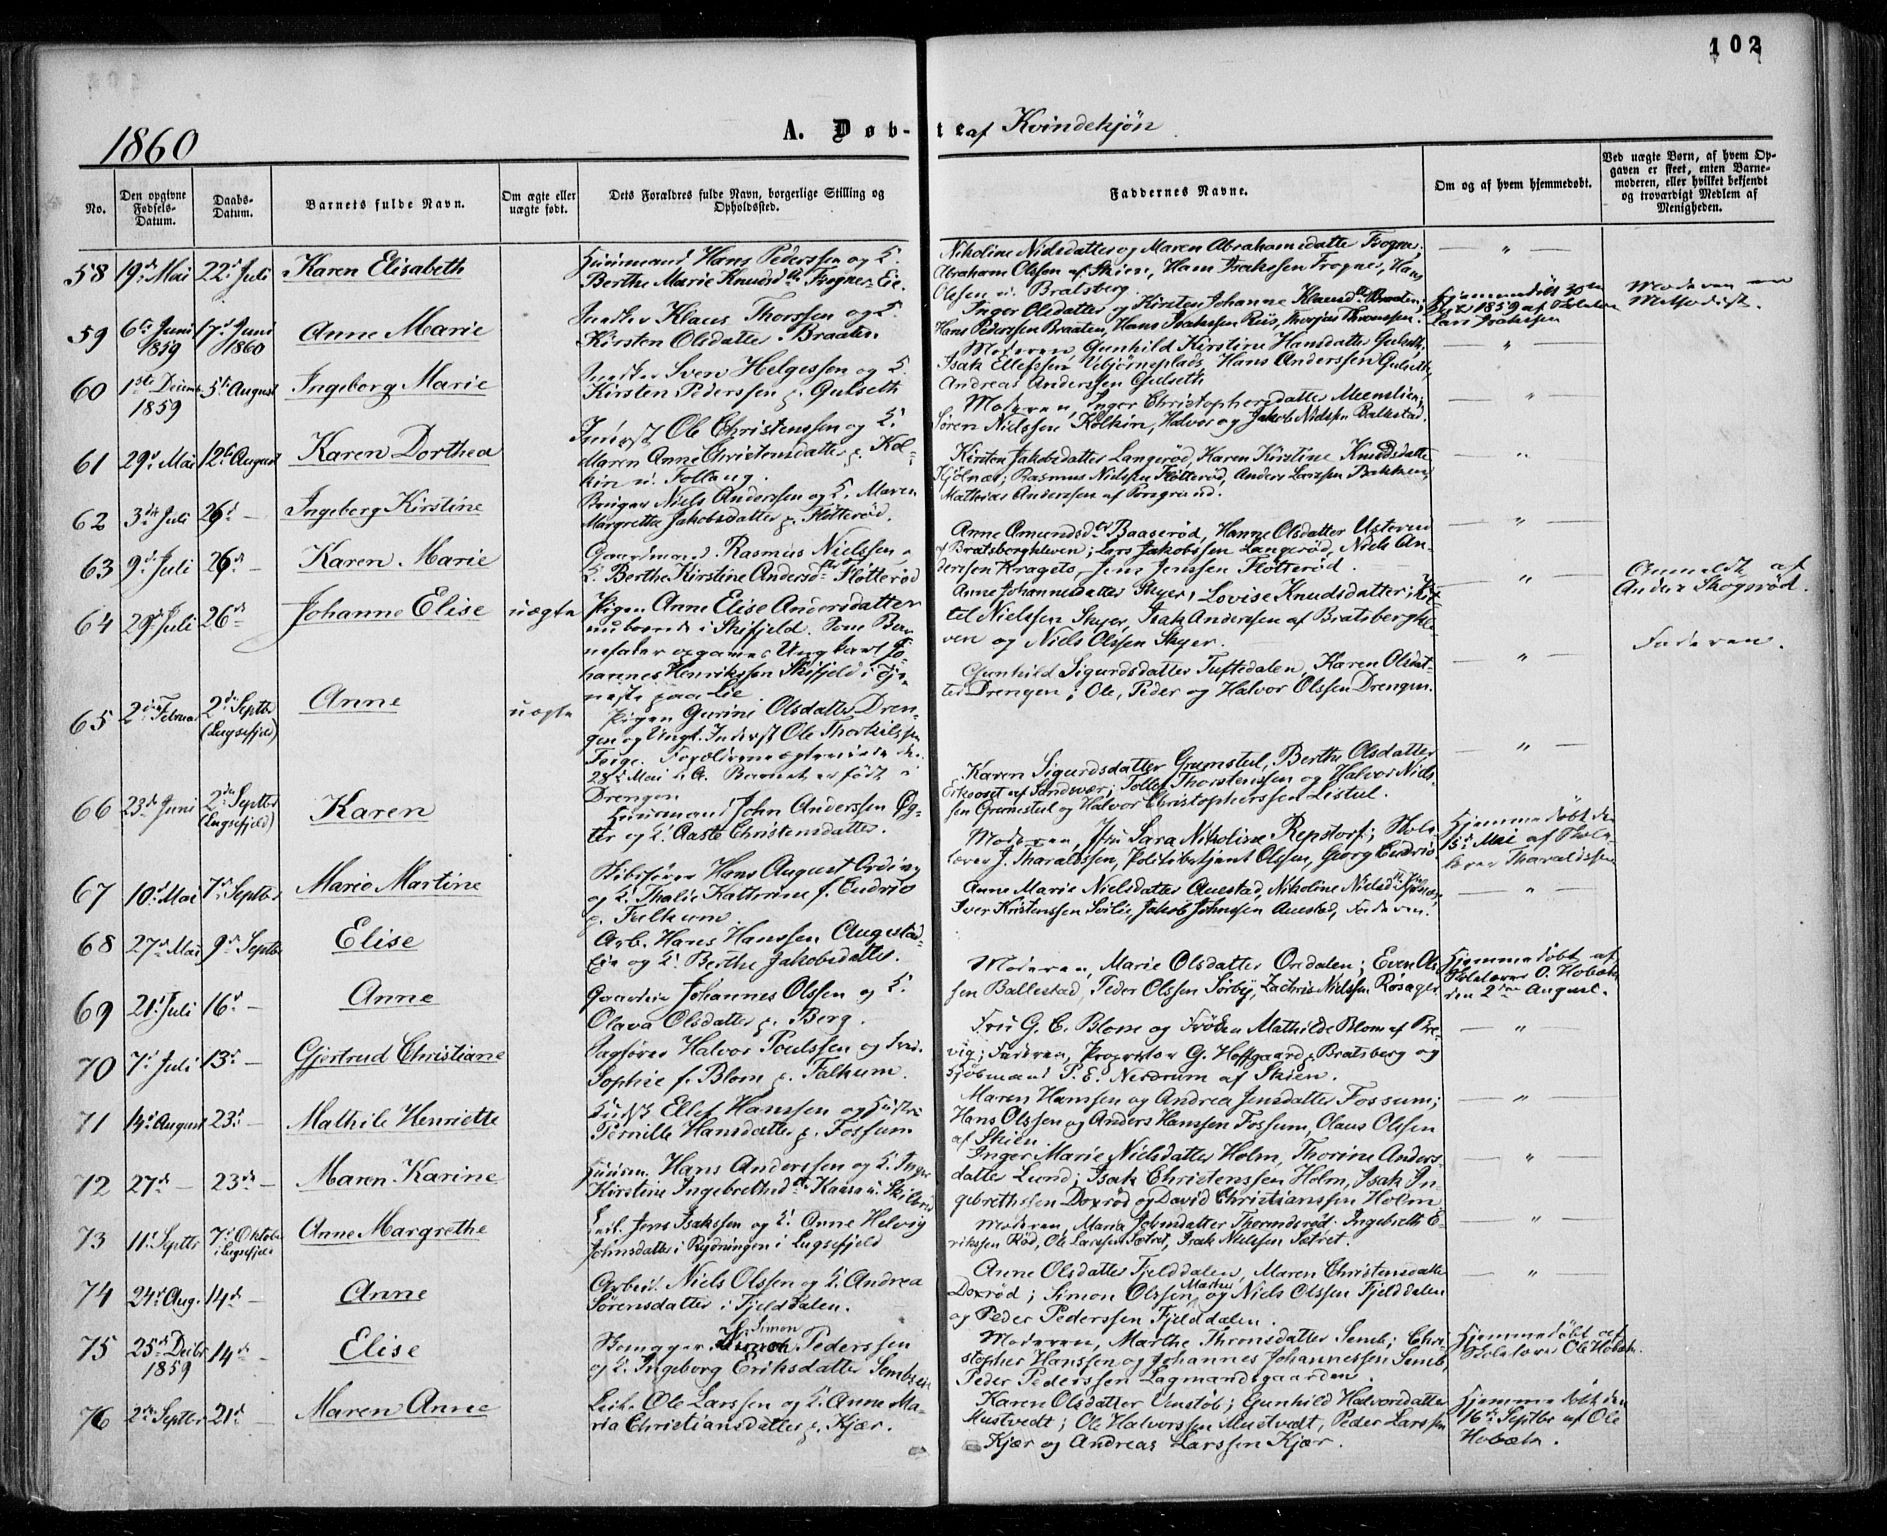 102
1860
A. Døb-te af Kvindekjøn
No.
Den opgivne Fødsels-Datum.
Daabs-Datum.
Barnets fulde Navn.
Om ægte eller uægte født.
Dets Forældres fulde Navn, borgerlige Stilling og Opholdssted.
Faddernes Navne.
Om og af hvem hjemmedøbt.
Ved uægte Børn, af hvem Opgaven er skeet, enten Barnemoderen, eller hvilket bekjendt og troværdigt Medlem af Menigheden.
58 19de Mai 22d Juli Karen Elisabeth
Huusmand Hans Pederssen og K.
Berthe Marie Knudsdtr Frogner Eie.
Nikoline Nielsdatter og Maren Abrahamsdatter Frogner,
Abraham Olssen af Skien, Hans Isakssen Frogner, Hans
Olsen u. Bratsberg.
59 6te Juni 1859 17d Juni 1860 Anne Marie
Klaus Thorssen og K.
Kirsten Olsdatter Braaten
Inger Olsdatter og Kirsten Johanne Klausdtr Braaten;
Hans Pederssen Braaten, Hans Isakssen Riis,
Hjemmedøbt 30te
1859 af Skolelærer
Lars Isakssen
Moderen
Methodist.
60 1ste Decemb 1859 5te August Ingeborg Marie
Sven Helgessen og K.
Kirsten Pederssen p. Gulseth
Moderen, Gunhild Kirstine Hansdatter Gulseth,
Isak Ellefssen Vebjørnsplads, Hans Anderssen Gulseth,
Andreas Anderssen Gulseth
61 29d Mai 12te August Karen Dorthea
Inderst Ole Christenssen og K.
Maren Anne Christensdatter p. Kol-
kin u. Follaug.
Moderen, Inger Christophersdatter Meenslien;
Søren Nielssen Kolkin, Halvor og Jakob Nielssen Ballestad.
62 3die Juli 26d — Ingeborg Kirstine
Bruger Niels Anderssen og K. Maren
Margrethe Jakobsdatter p. Fløtterød.
Kirsten Jakobsdatter Langerød, Karen Kirstine Knudsdatter
Hjølnæs; Rasmus Nielssen Fløtterød, Anders Larssen Bakken,
Mathias Anderssen af Porsgrund.
63 9d Juli 26de — Karen Marie
Gaardmand Rasmus Nielssen o
K. Berthe Kirstine Andersdtr Fløtterød
Anne Amundsdtr Baaserød, Hanne Olsdatter Usterud
af Bratsbergkleven; Lars Jakobssen Langerød, Niels An-
derssen Kragetø, Jens Jenssen Fløtterød.
64 29d Juli 26de Johanne Elise uægte
Pigen Anne Elise Andersdatter
nuboende i Skifjeld. Som Bar-
nefader opgaves Ungkarl Jo-
hannes Henrikssen Skifjeld i Tje-
neste paa Lie
Anne Johannesdatter Skyer, Lovise Knudsdatter; Kit-
tel Nielssen Skyer, Isak Anderssen af Bratsbergkle-
ven og Niels Olssen Skyer.
Anmeldt af
Anders Skogrød.
65 2den Februar 2de Septbr (Luksefjeld) Anne uægte
Pigen Gurine Olsdatter Dren-
gen og Ungk. Inderst Ole Thorkilssen
Foige. Forældrene ægteviede d.
28de Mai d. A. Barnet er født i
Drengen
Gunhild Sigurdsdatter Tuftedalen, Karen Olsdat-
ter Drengen; Ole, Peder og Halvor Olssen Drengen.
Faderen.
66 23de Juni 2den Septbr (Luksefjeld) Karen
Huusmand John Anderssen Øg-
ter og K. Aaste Christensdatter.
Karen Sigurdsdatter Grumstul, Berthe Olsdatter
af Sandsvær; Tollef Thorstenssen og Halvor Niels-
sen Grumstul og Halvor Christopherssen Listul.
67 10d Mai 7d Septbr Marie Martine
Skibsfører Hans August Ording
og K. Thalie Kathrine f. Eudrio
p. Falkum
Moderen, Sara Nikoline Repstorf; Skole-
lærer J. Tharaldssen, Politibetjent Olssen, Georg Eudrio
Hjemmedøbt den
15de Mai af Skole-
lærer Tharaldssen
68 27d Mai 9d Septbr Elise
Arb. Hans Hanssen Augestad-
Eie og K. Berthe Jakobsdatter.
Anne Marie Nielsdatter Auestad, Nikoline Nielsdtr
Iver Kristenssen Sørlie, Jakob Johnssen Auestad, Faderen.
69 21d Juli 16d — Anne
Gaardeier Johannes Olssen og K.
Olava Olsdatter p. Berg.
Moderen, Marie Olsdatter Oredalen; Even Ols-
sen Ballestad, Peder Olssen Sørby, Zachris Nielssen Røsager
Hjemmedøbt af
Skolelærer O. Hobæk
den 2den August.
70 7d Juli 13d — Gjertrud Christiane
Sagfører Halvor Poulssen og Fru
Sophie f. Blom p. Falkum.
Fru G. C. Blom og Frøken Mathilde Blom af Bre-
vig; Faderen, Proprietær G. Hoffgaard p. Bratsberg og
Kjøbmand P. E. Nerdrum af Skien.
71 14d August 23d — Mathile Henriette
Ellef Hanssen og Hustru
Pernille Hansdatter p. Fossum
Maren Hanssen og Andrea Jensdatter Fossum;
Hans Olssen og Anders Hanssen Fossum, Olaus Olssen
af Skien
72 27de — 23de — Maren Karine
Huusm. Hans Anderssen og K. Inger
Kirstine Ingebrethsdtr Kaasa u. Skilbred
Inger Marie Nielsdatter Holm, Thorine Anders-
datter Lund; Isak Christenssen Holm, Isak In-
gebrethssen Doxrød og David Christianssen Holm.
73 11d Septbr 7de Oktober i Luksefjeld Anne Margrethe
Leil. Jens Isakssen og K. Anne Helvig
Johnsdatter i Rydningen i Luksefjeld
Moderen, Maria Johnsdatter Thormdsrød. Ingebreth E-
rikssen Rød, Ole Larssen Sætret, Isak Nielssen Sætret.
74 24d Aug. 14de — Anne
Arbeid. Niels Olssen og K. Andrea
Sørensdatter i Fjelddalen.
Anne Olsdatter Fjelddalen, Maren Christensdatter
Doxrød; Simon Olssen Marker og Niels Olssen Fjelddalen
og Peder Pederssen Fjelddalen.
75 25de Decbr 1859 14de — Elise
Simon Pederssen
og K. Ingeborg Eriksdatter Semb
Moderen, Marthe Thronsdatter Semb; Chri-
stopher Hanssen og Johannes Johannessen Semb,
Peder Pederssen Lagmandsgaarden.
Hjemmedøbt af
Skolelærer Ole Hobæk.
76 2den Septbr 21d — Maren Anne
Leil. Ole Larssen og K. Anne Ma-
ria Christiansdatter p. Kjær.
Karen Olsdatter Venstøb; Gunhild Halvorsdatter
Mustvedt; Ole Halvorssen Mustvedt, Peder Larssen
Kjær og Andreas Larssen Kjær.
Hjemmedøbt den
16de Septbr af Ole
Hobæk.